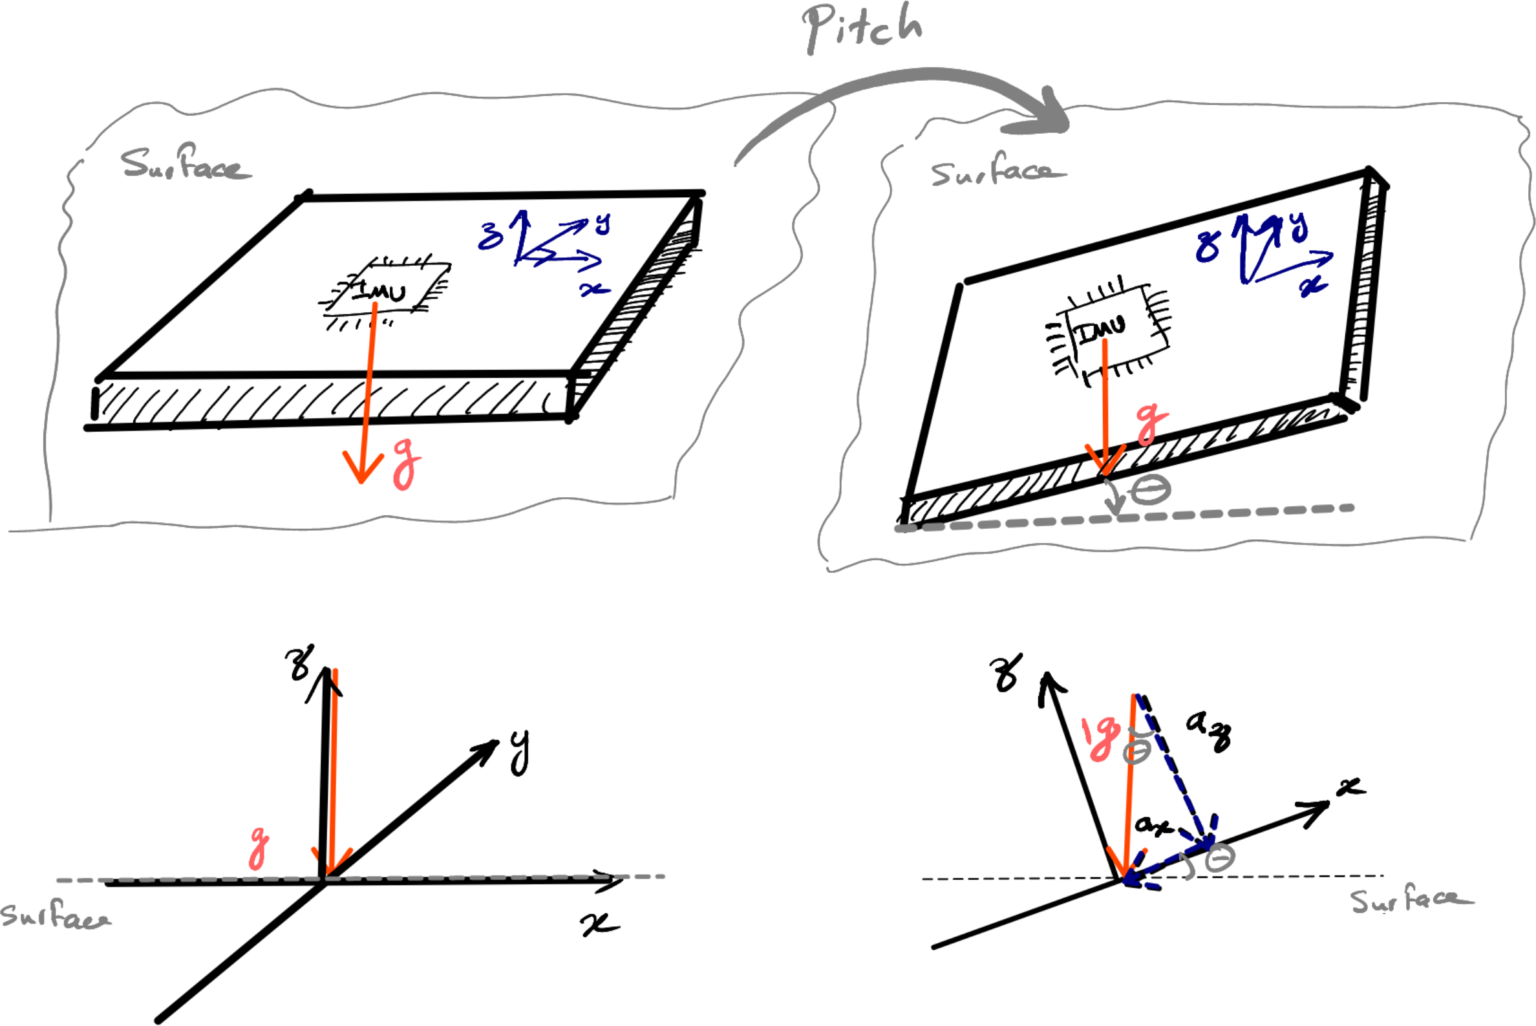 Pitch
Surface
z y
x
IMU
g
Surface
z y
x
IMU
g
Θ
z
y
g
Surface
x
z
1g
Θ
az
x
ax
Θ
Surface